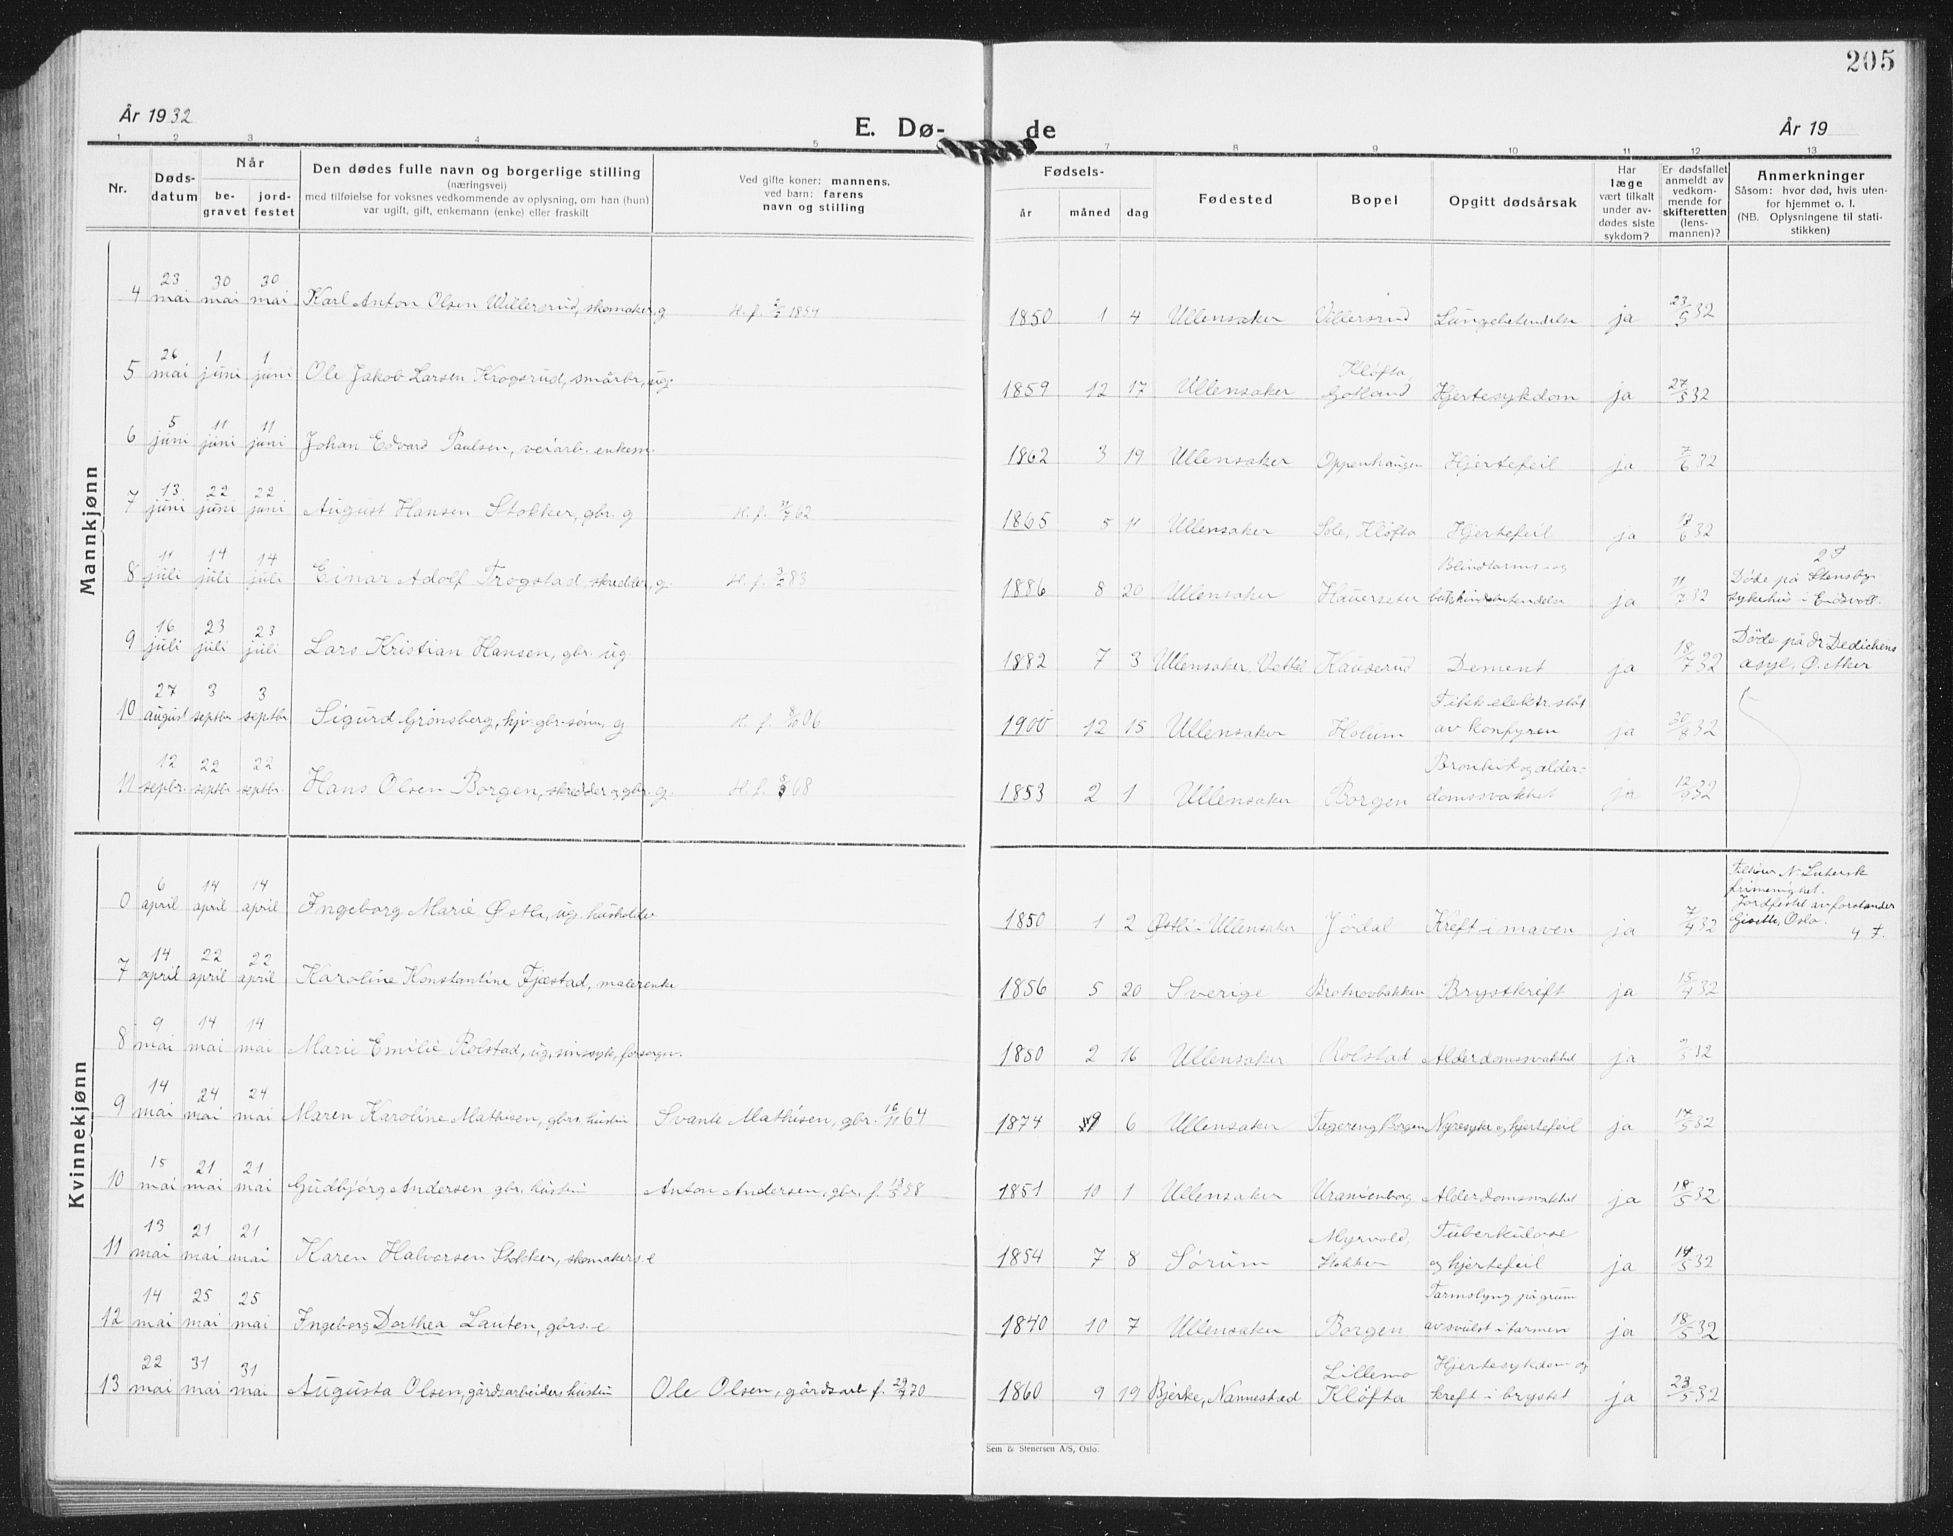 205
År 1932
E. Dø-
de
År 19
1 2 3 4 5 7 8 9 10 11 12 13
Nr.
Døds-
datum
Når
be-
gravet
jord-
festet
Den dødes fulle navn og borgerlige stilling
(næringsvei)
med tilføielse for voksnes vedkommende av oplysning, om han (hun)
var ugift, gift, enkemann (enke) eller fraskilt
Ved gifte koner: mannens,
ved barn: farens
navn og stilling
Fødsels-
år måned dag
Fødested
Bopel
Opgitt dødsårsak
Har
læge
vært tilkalt
under av-
dødes siste
sykdom?
Er dødsfallet
anmeldt av
vedkom-
mende for
skifteretten
(lens-
mannen)?
Anmerkninger
Såsom: hvor død, hvis uten-
for hjemmet o. l.
(NB. Oplysningene til stati-
stikken)
Mannkjønn
4 23 mai 30 mai 30 mai Karl Anton Olsen Willersrud, skomaker, g H. f. 1854 1850 1 4 Ullensaker Villersrud Lungebetendelse ja 23/5 32
5 26 mai 1 juni 1 juni Ole Jakob Larsen Krogsrud, småbr, ug. 1859 12 17 Ullensaker Kløfta, Gotland Hjertesykdom ja 27/5 32
6 5 juni 11 juni 11 juni Johan Edvard Paulsen, veiarb. enkem. 1862 3 19 Ullensaker Oppenhaugen Hjertefeil ja 7/6 32
7 13 juni 22 juni 22 juni August Hansen Stokker, gbr. g H. f. 62 1865 5 11 Ullensaker Sole, Kløfta Hjertefeil ja 18/6 32
8 11 juli 14 juli 14 juli Einar Adolf Trogstad, skredder, g. H. f. 83 1886 8 20 Ullensaker Hauerseter Blindtarms- og bukhindebetendelse ja 11/7 32 2 F Døde på Stensby sykehus i Eidsvoll.
9 16 juli 23 juli 23 juli Lars Kristian Hansen, gbr. ug. 1882 7 3 Ullensaker, Vettal Kauserud Dement ja 18/7 32 Døde på dr Dedichens asyl, Ø. Aker
10 27 august 3 septbr 3 septbr. Sigurd Grønsberg, hjv. gbr. sønn, g H. f. 06 1900 12 15 Ullensaker Holum Fikk elektr. støt av komfyren ja 30/8 32
11 12 sepbr. 22 septbr. 22 septbr. Hans Olsen Borgen, skredder og gbr. g. H. f. 68 1853 2 1 Ullensaker Borgen Bronkit og alderdomssvakhet ja 12/9 32
Kvinnekjønn
6 april 14 april 14 april Ingeborg Marie Østli, ug. husholder 1850 1 2 Østli - Ullensaker Jødal Kreft i maven ja 7/4 32 Tilhører N. Lutersk frimenighet. Jordfestet av forstander Oslo. 4 F.
7 14 april 22 april 22 april Karoline Konstantine Fjæstad, malerenke 1856 5 20 Sverige Brotnovbakken Brystkreft ja 15/4 32
8 9 mai 14 mai 14 mai Marie Emilie Rolstad, ug, sinssyk, forsorgn. 1850 2 16 Ullensaker Rolstad Alderdomssvakhet ja 9/5 32
9 14 mai 24 mai 24 mai Maren Karoline Mathisen, gbrs. hustru Svante Mathisen, gbr. 16/11 64 1874 9 6 Ullensaker Fagereng Borgen Nyresyke og hjertefeil ja 17/5 32
10 15 mai 21 mai 21 mai Gudbjørg Andersen gbr. hustru Anton Andersen, gbr. f. 58 1851 10 1 Ullensaker Uranienborg Alderdomssvakhet ja 18/5 32
11 13 mai 21 mai 21 mai Karen Halvorsen Stokker, skomakers.e 1854 7 8 Sørum Myrvold, Stokker Tuberkulose og hjertefeil ja 14/5 32
12 14 mai 25 mai 25 mai Ingeborg Dorthea Lauten, gbrs.-e 1840 10 7 Ullensaker Borgen Tarmslyng på grunn av svulst i tarmen ja 18/5 32
13 22 mai 31 mai 31 mai Augusta Olsen, gårdsarbeiders hustru Ole Olsen, gårdsarb. f. 70 1860 9 19 Bjerke, Nannestad Lillemo Kløfta Hjertesykdom og kreft i brystet ja 23/5 32
Sem & Stenersen A/S, Oslo.